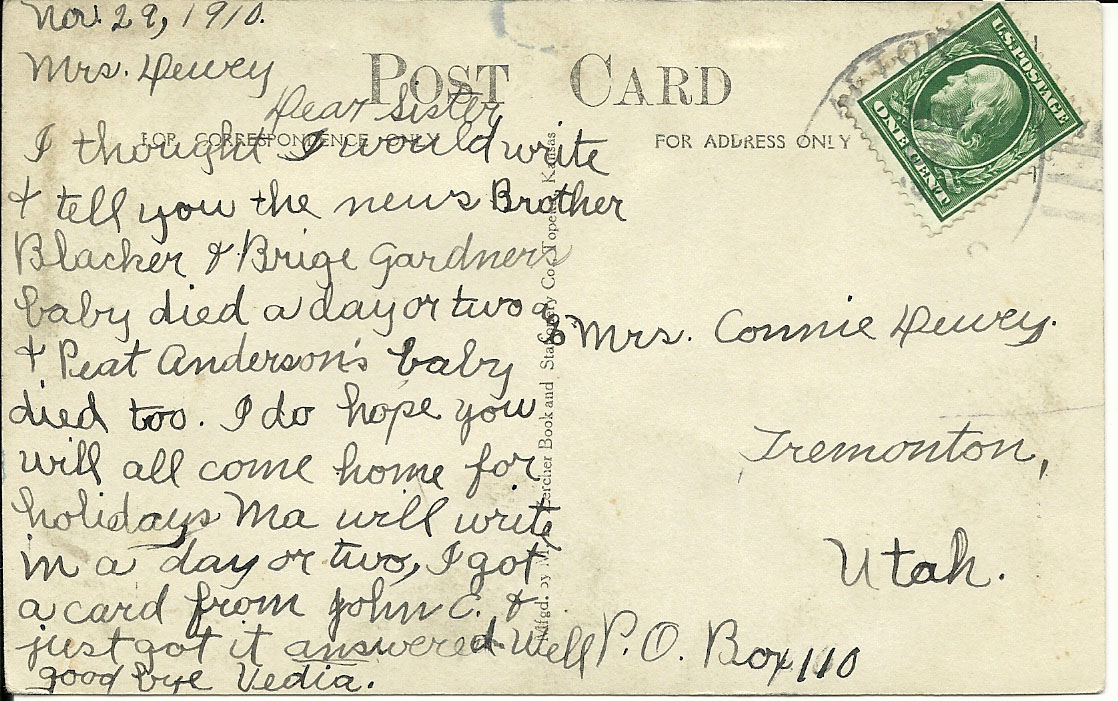 Nov. 29, 1910.
Mrs. Dewey
Dear Sister
I thought I would write
& tell you the news Brother
Blacker & Brige Gardners
baby died a day or two
& Peat Anderson's baby
died too. I do hope you
will all come home for
holidays Ma will write
in a day or two, I got
a card from John C. &
just got it answered. Well
good bye Vedia.
POST CARD
FOR CORRESPONDENCE ONLY
FOR ADDRESS ONLY
U.S. POSTAGE
ONE CENT
Mrs. Connie Dewey.
Tremonton,
Utah.
P.O. Box 110
Mfgd. by Book and Stationery Co. Topeka, Kansas